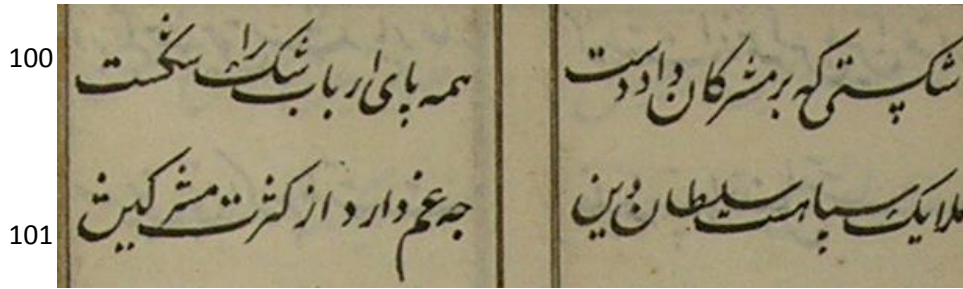 100 شکستی که بر مشرکان داد دست همه پای ارباب شک را شکست
101 ملایک سپاهست سلطان دین جه غم دارد از کثرت مشرکین